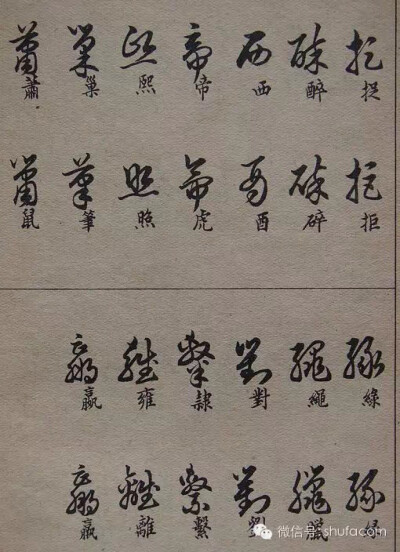 捉 醉 西 帝 熙 巢 蕭
拒 碎 酉 虎 照 筆 鼠
綠 繩 對 隸 雍 嬴
臘 劉 繫 離 羸
微信号: shufacom